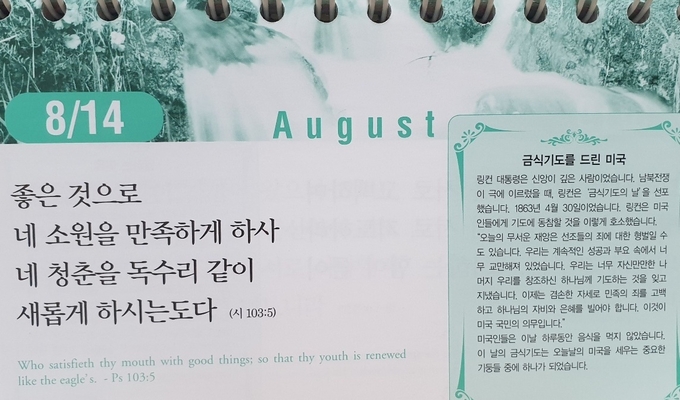 8/14
August
좋은 것으로
네 소원을 만족하게 하사
네 청춘을 독수리 같이
새롭게 하시는도다 (시 103:5)
Who satisfieth thy mouth with good things; so that thy youth is renewed
like the eagle's. - Ps 103:5
금식기도를 드린 미국
링컨 대통령은 신앙이 깊은 사람이었습니다. 남북전쟁
이 극에 이르렀을 때, 링컨은 '금식기도의 날'을 선포
했습니다. 1863년 4월 30일이었습니다. 링컨은 미국
인들에게 기도에 동참할 것을 이렇게 호소했습니다.
"오늘의 무서운 재앙은 선조들의 죄에 대한 형벌일 수
도 있습니다. 우리는 계속적인 성공과 부요 속에서 너
무 교만해져 있었습니다. 우리는 너무 자신만만한 나
머지 우리를 창조하신 하나님께 기도하는 것을 잊고
지냈습니다. 이제는 겸손한 자세로 민족의 죄를 고백
하고 하나님의 자비와 은혜를 빌어야 합니다. 이것이
미국 국민의 의무입니다."
미국인들은 이날 하루동안 음식을 먹지 않았습니다.
이 날의 금식기도는 오늘날의 미국을 세우는 중요한
기둥들 중에 하나가 되었습니다.